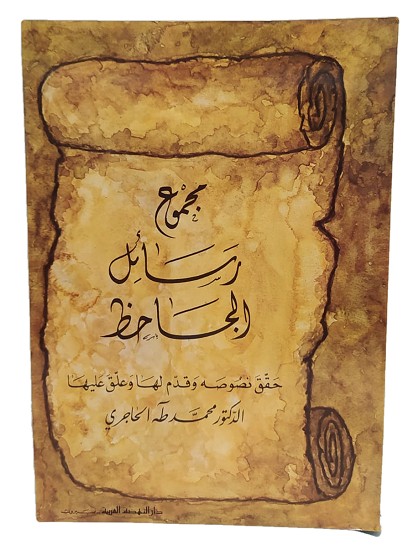 مجموع
رسائل
الجاحظ
حقّق نصوصه وقدّم لها وعلّق عليها
الدكتور محمّد طه الحاجري
دار النهضة العربية بيروت